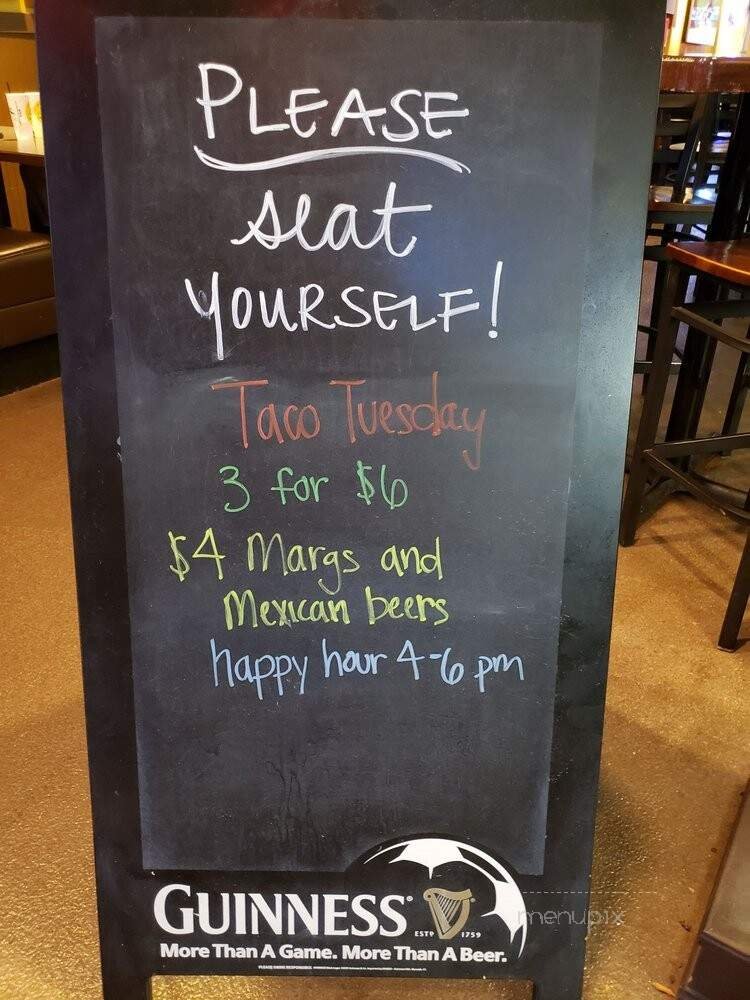 PLEASE
seat
YOURSELF!
Taco Tuesday
3 for $6
$4 Margs and
Mexican beers
happy hour 4-6 pm
GUINNESS®
ESTD 1759
More Than A Game. More Than A Beer.
menupix